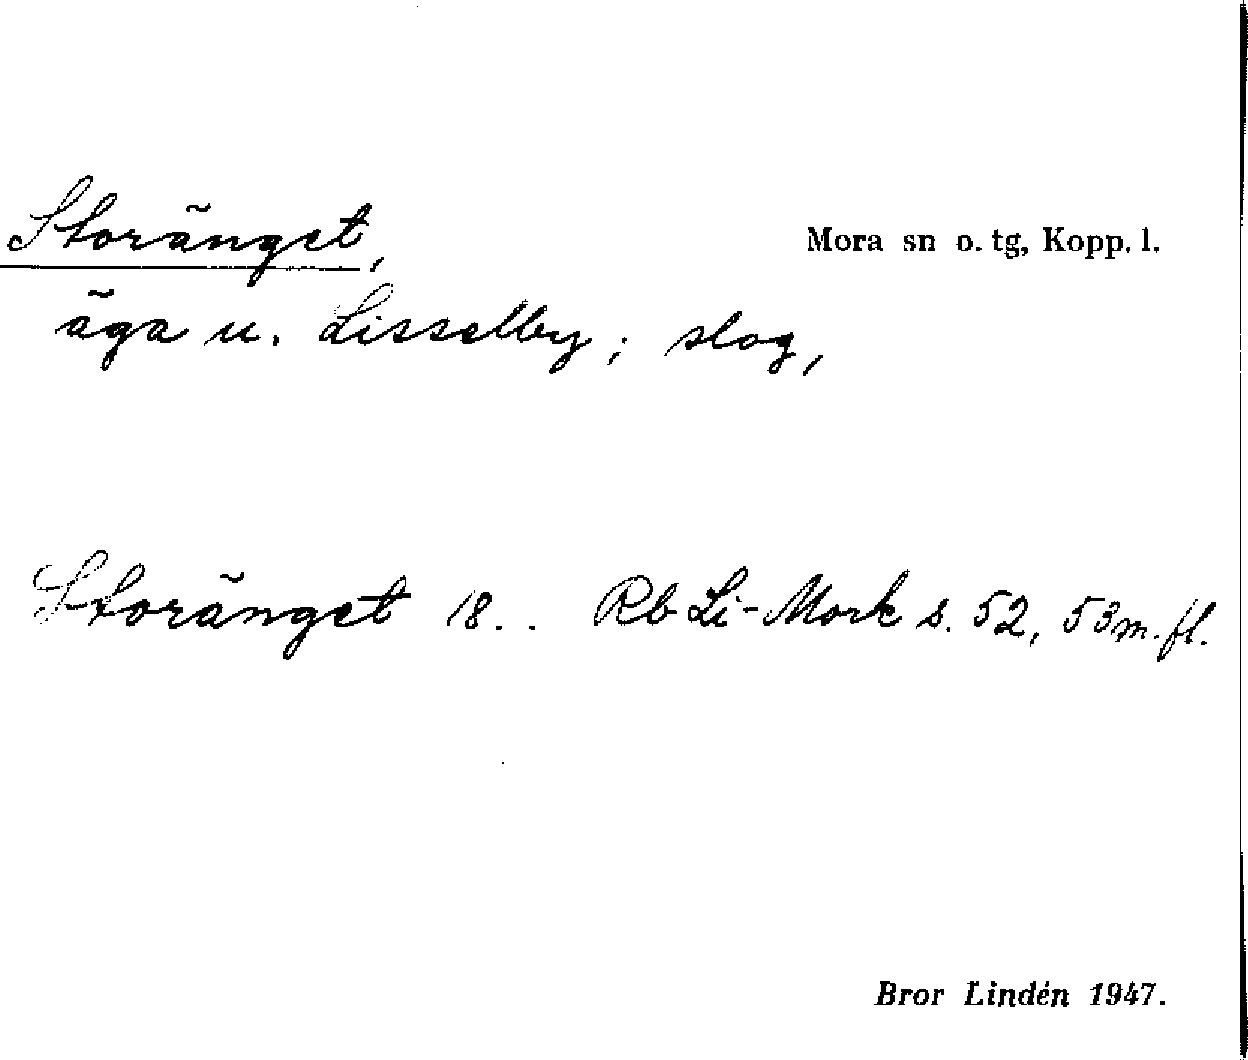 Storänget,
Mora sn o. tg, Kopp. l.
äga u. Lisselby; slog,
Storänget 18.. Rb Li-Mork s. 52, 53 m.fl.
Bror Lindén 1947.